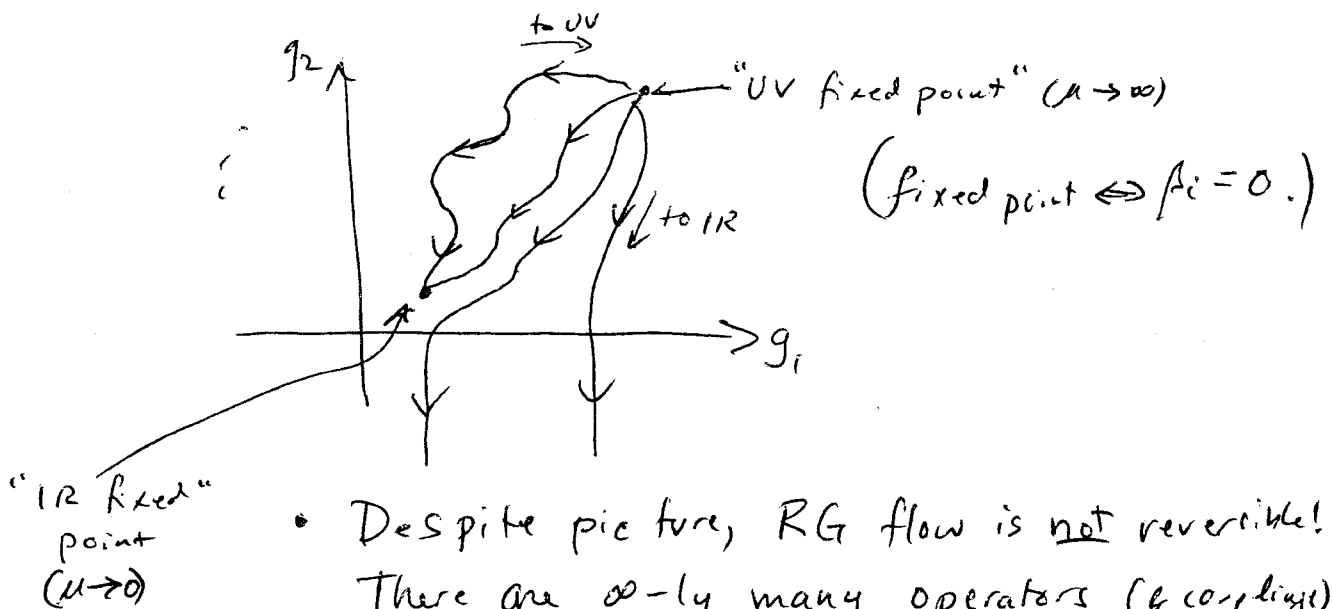 to UV
g₂
"UV fixed point" (μ→∞)
(fixed point ⇔ βᵢ = 0.)
to IR
g₁
"IR fixed"
point
(μ→0)
• Despite picture, RG flow is not reversible!
There are ∞-ly many operators (& couplings)